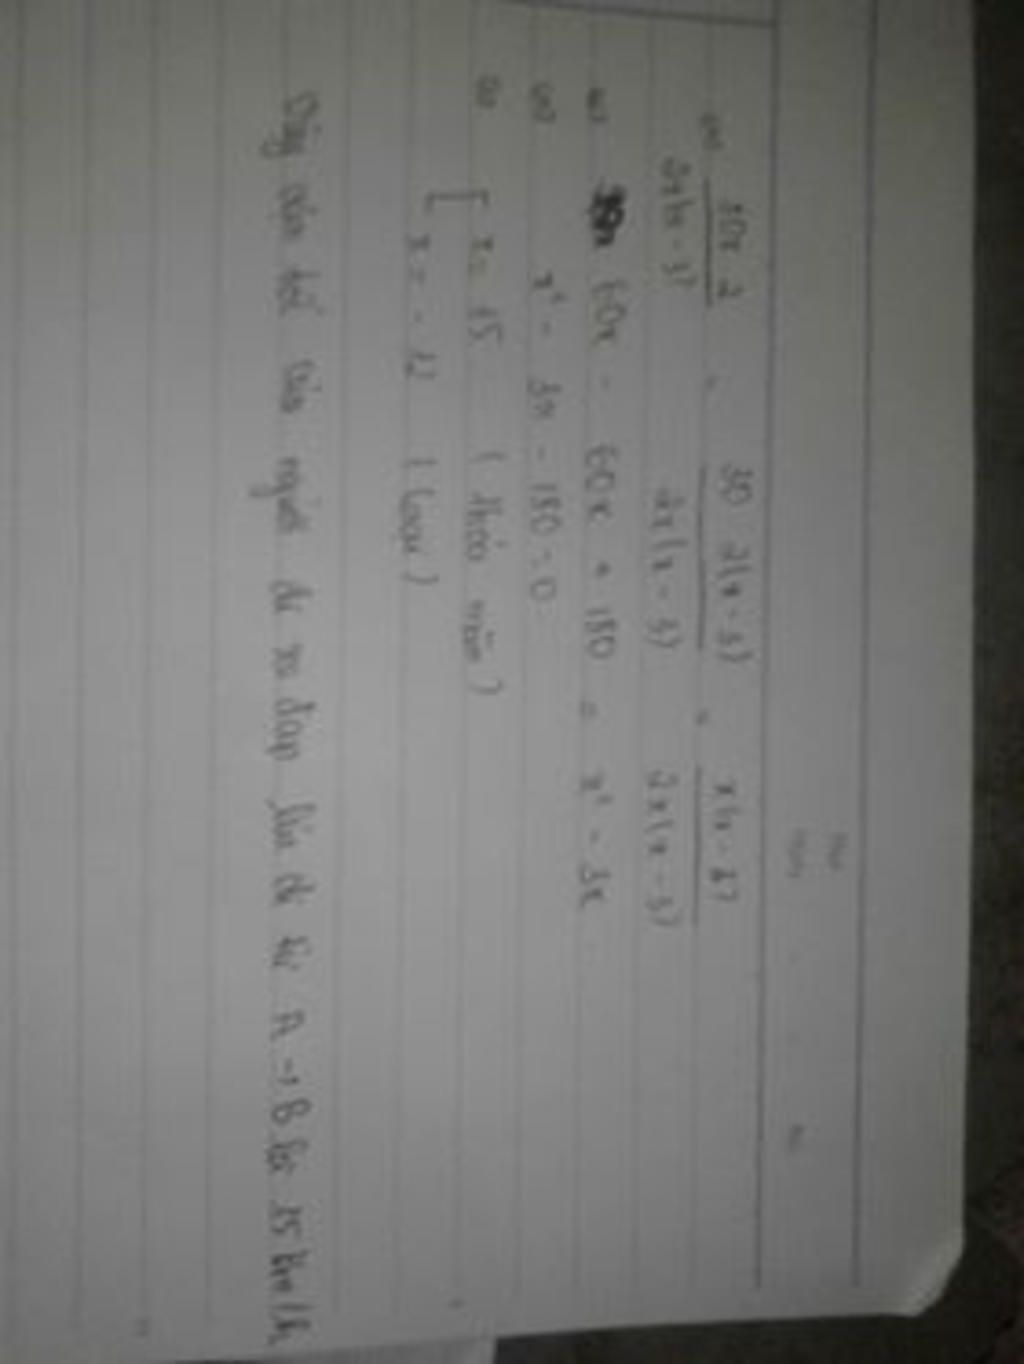 (=) 30x.2 / 2x(x-3) - 30.2(x-3) / 2x(x-3) = x(x-3) / 2x(x-3)
(=) 60x - 60x + 180 = x² - 3x
(=) x² - 3x - 180 = 0
(=) [ x = 15 (thỏa mãn)
x = -12 (Loại)
Vậy vận tốc của người đi xe đạp lúc đi từ A → B là 15 km/h